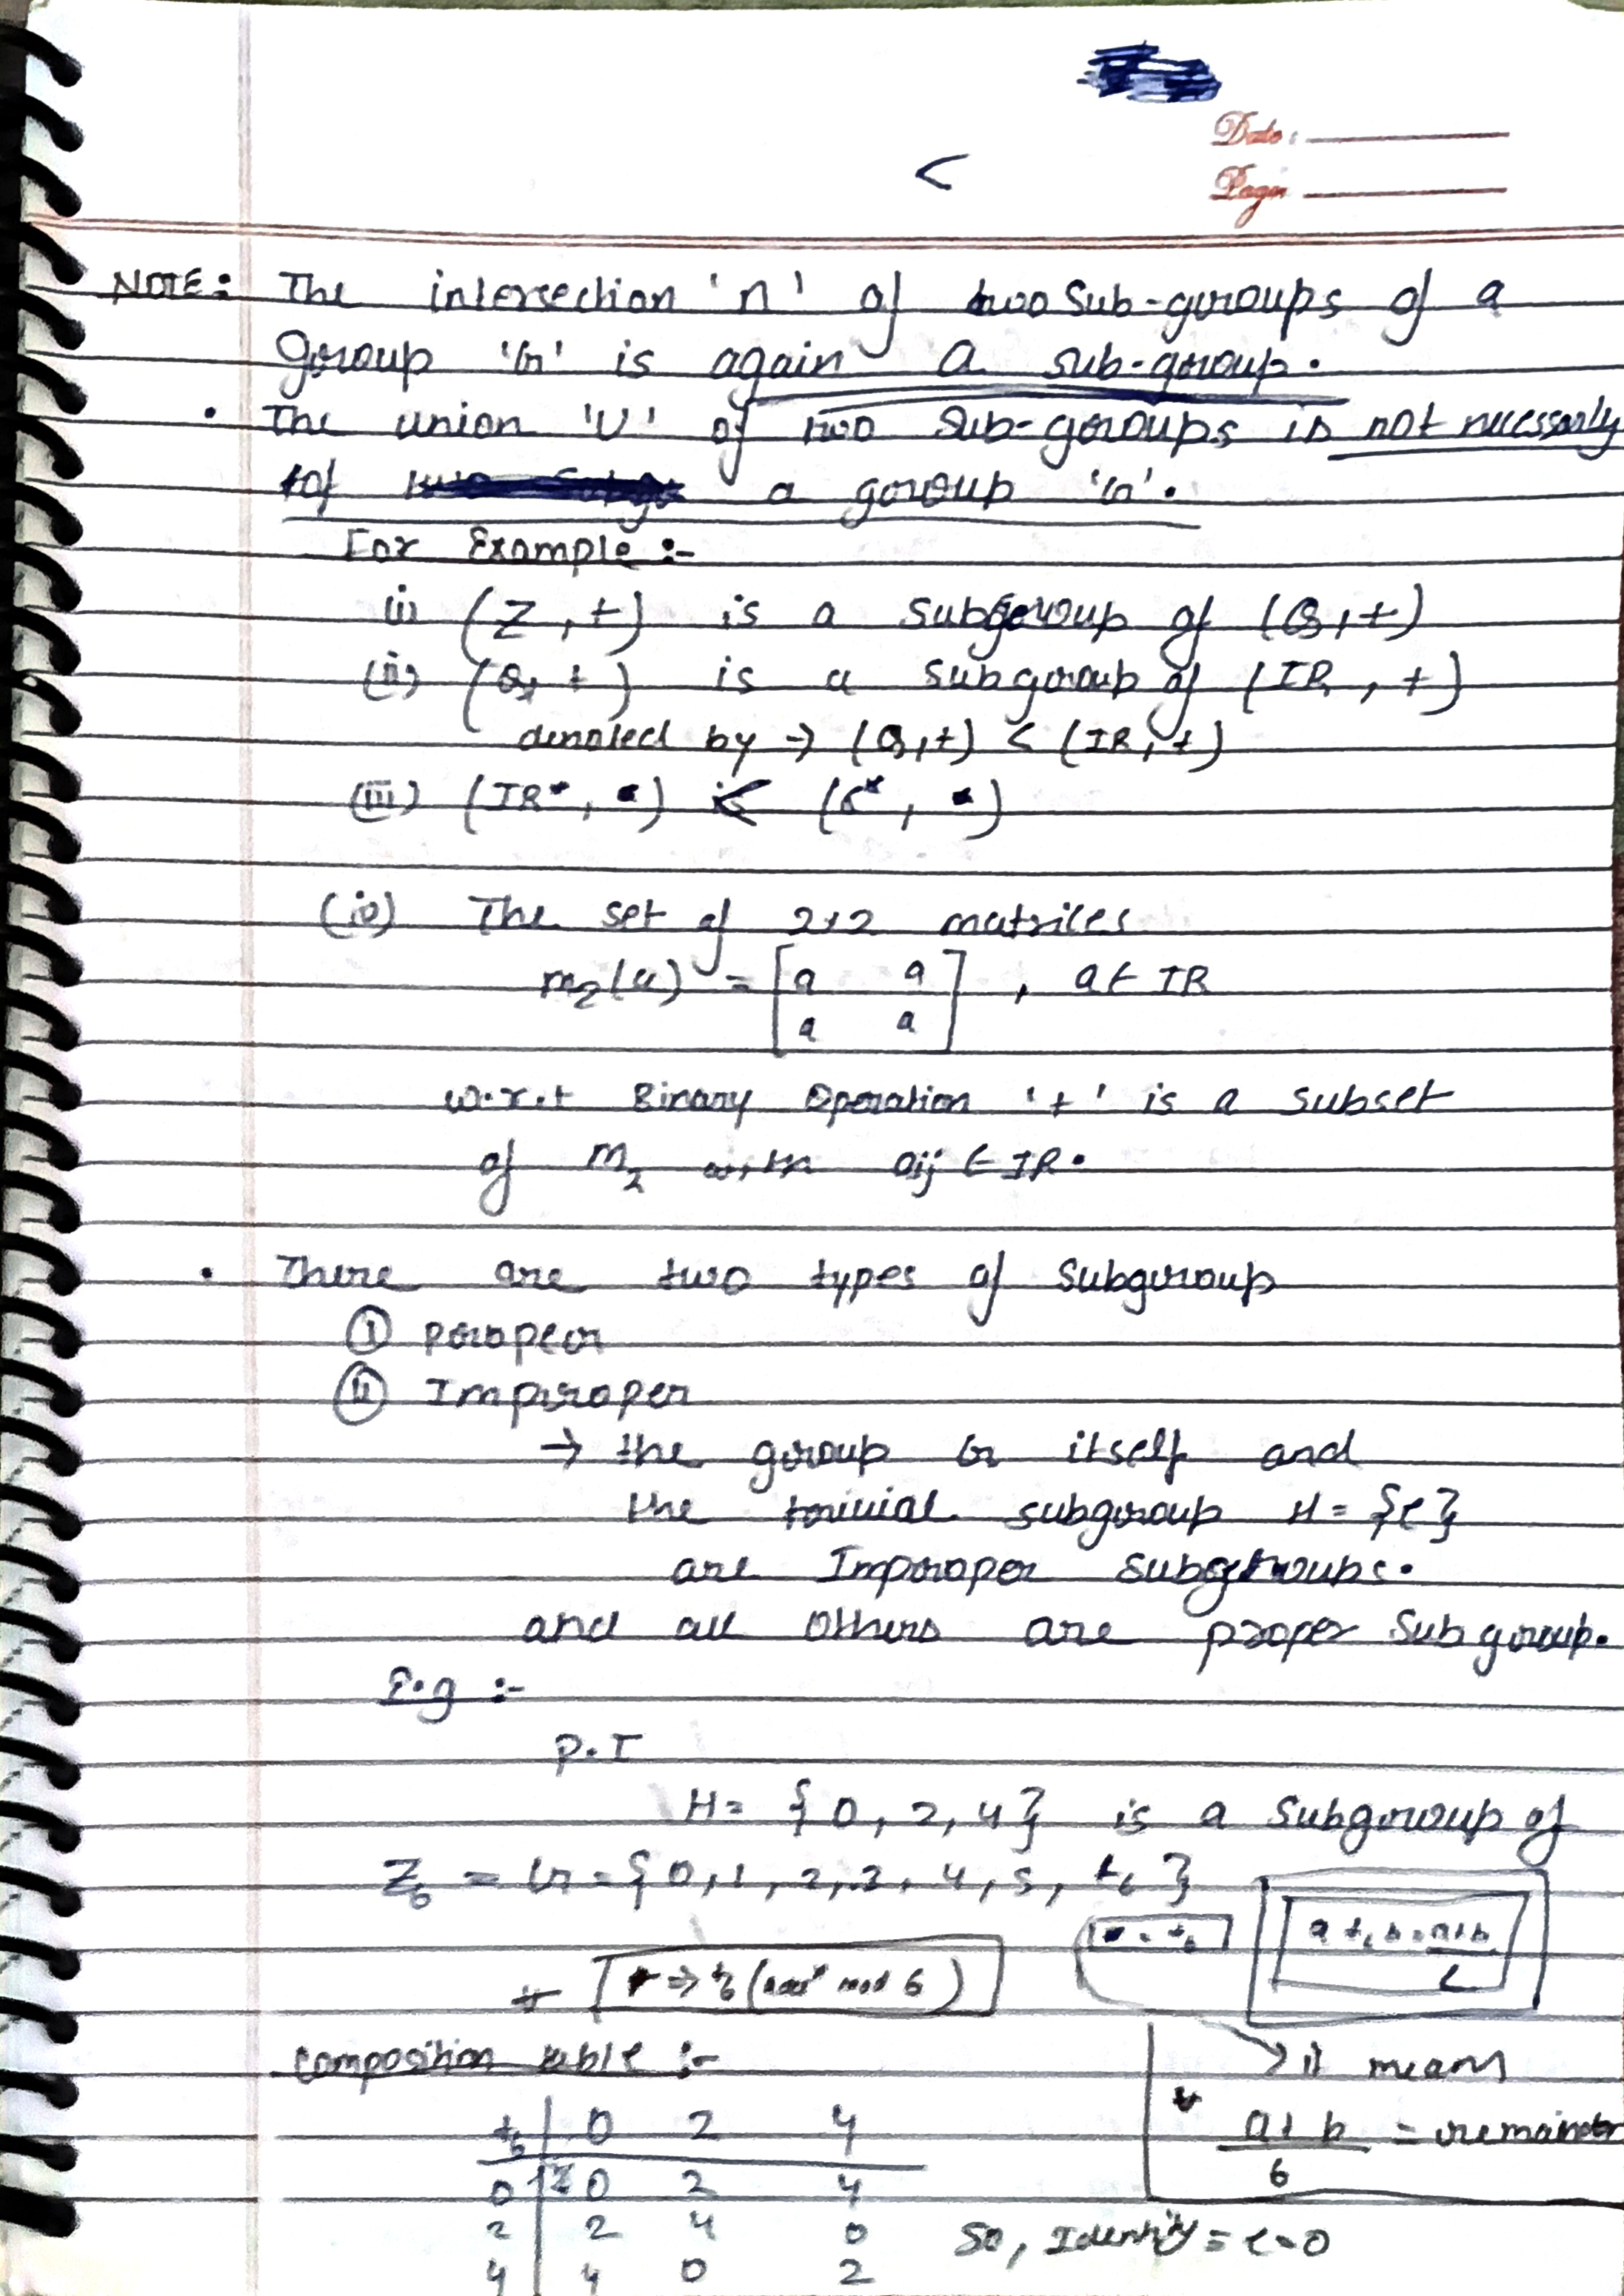 Date:
Page
<
NOTE: The intersection '∩' of two Sub-groups of a
Group 'G' is again a sub-group.
• The union 'U' of two Sub-groups is not necessarly
of a group 'G'.
For Example :-
(i) (Z, +) is a subgroup of (Q, +)
(ii) (Q, +) is a subgroup of (IR, +)
denoted by → (Q, +) < (IR, +)
(iii) (IR*, •) < (C*, •)
(iv) The set of 2x2 matrices
m2(a) = [a a
a a] , a ∈ IR
w.r.t Binary Operation '+' is a subset
of M2 with aij ∈ IR.
• There are two types of Subgroup
(i) proper
(ii) Improper
→ the group G itself and
the trivial subgroup H = {e}
are Improper subgroups.
and all others are proper Subgroup.
E.g :-
P.T
H = {0, 2, 4} is a Subgroup of
Z6 = G = {0, 1, 2, 3, 4, 5, +6}
* = +6
a +6 b = a+b
6
* ⇒ +6 (add^n mod 6)
Composition table :-
→ it means
* a+b = remainder
6
+6 | 0 2 4
0 | 0 2 4
2 | 2 4 0
4 | 4 0 2
So, Identity = e = 0